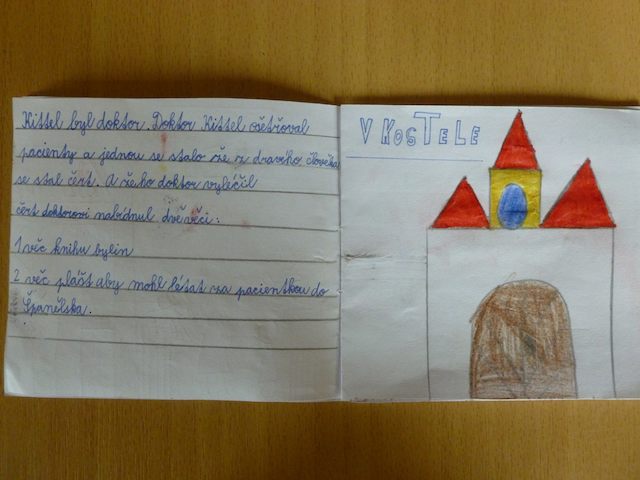 Kittel byl doktor. Doktor Kittel ošetřoval
pacienty a jednou se stalo že z dravého člověka
se stal čert. A že ho doktor vyléčil
čert doktorovi nabídnul dvě věci:
1 věc knihu bylin
2 věc plášť aby mohl létat za pacientkou do
Španělska.
V KOSTELE